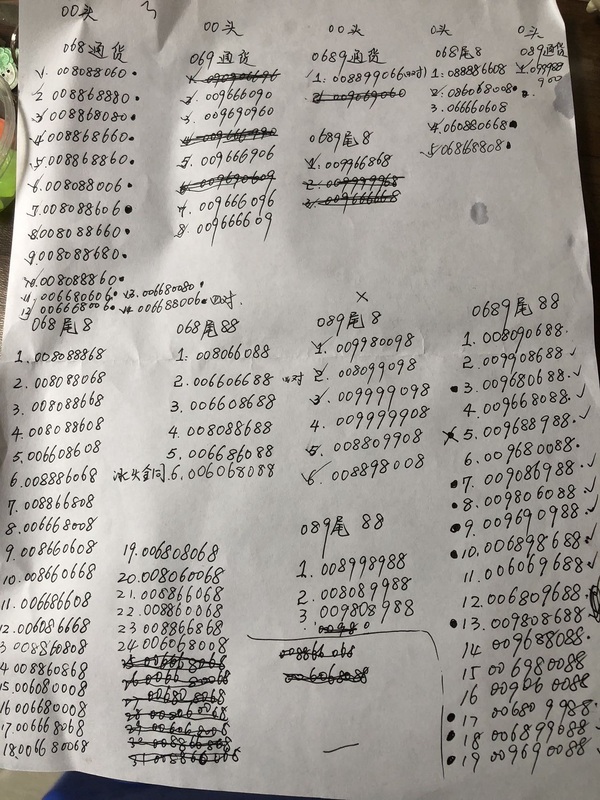 00头
068通货
1. 008088060
2 008868880
3. 008868080
4.008868660
5.008868860
6.008088006
7.008088606
8.008088660
9.008088680
10.008088860
11.006680606 13.006680080
12 006668006 14.006688006 四对
00头
069通货
2. 009666090
3. 009690960
5. 009666906
7. 009666096
8. 009666609
00头
0689通货
1: 008899066 四对
0689尾8
1.009966868
0头
068尾8
1:088886608
2:086068008
3.066660608
4.060880668
5.068668808
0头
089通货
068尾8
1.008088868
2.008088068
3.008088668
4.008088608
5.006608608
6.008886068
7.008866808
8.006668008
9.008660608
10.008660668
11.006686608
12.006086668
3 008868068
4 008860868
15.006080008
16.006680008
17.006668068
18.006680068
068尾88
1: 008066088
2.006606688 四对
3.006608688
4.008088688
5.006686088
6.006068088
19.006808068
20.008060068
21.008866068
22.008860068
23 008866868
24 006068008
×
089尾8
1.009980098
2.008099098
3.009999098
4.009999908
5.008809908
6.008898008
089尾 88
1.008998988
2.008089988
3 009808988
0689尾88
1.008090688
2.009908688
3.009680688
4.009668088
5.009688988
6.009680088
7.009086988
8.009806088
9.009690988
10.006898688
11.006069688
12.006809688
13.009808688
14 009688088
15 006980088
16 009060088
17 006809988
18 006899688
19 009690088